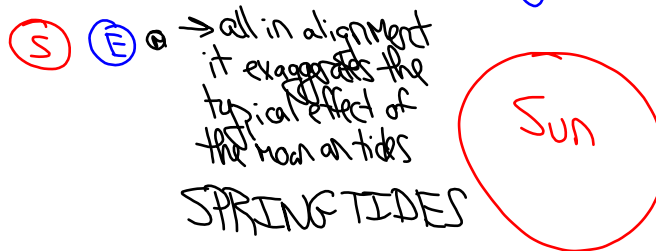 S E M → all in alignment
it exaggerates the
typical effect of
the moon on tides
SPRING TIDES
Sun